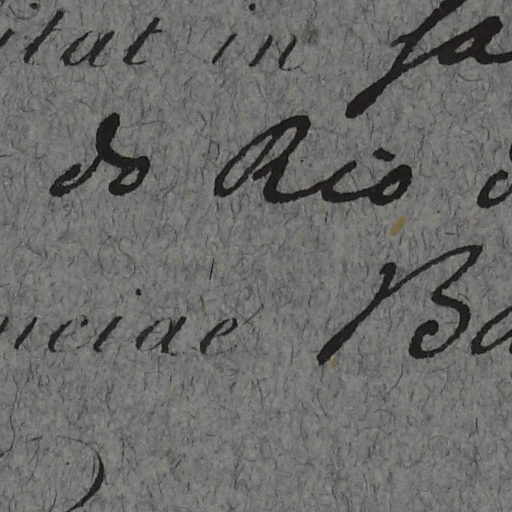 itat in fa
do Rio d
nciae Ba